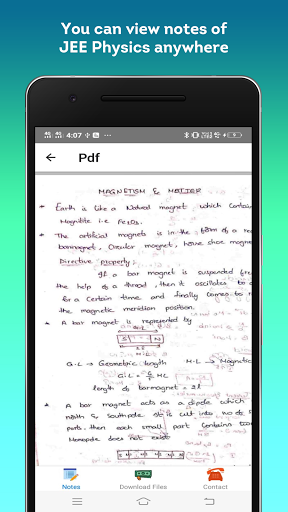 You can view notes of
JEE Physics anywhere
4:07
Pdf
MAGNETISM & MATTER
Earth is like a Natural magnet which contain
Magnitite i.e Fe3O4.
The artificial magnets is in the form of a
barmagnet, Circular magnet, horse shoe magne
Directive property:
If a bar magnet is suspended
the help of a thread, then it oscillates to
for a Certain time and finally comes to
the magnetic meridian position.
A bar magnet is represented by
S N
G.L → Geometric length M.L → Magnetic
G.L = 6/5 M.L
length of barmagnet = 2l
A bar magnet acts as a dipole which
north & South pole. It is cut into no of
parts, then each small part contains
Monopole does not exist
Notes Download Files Contact